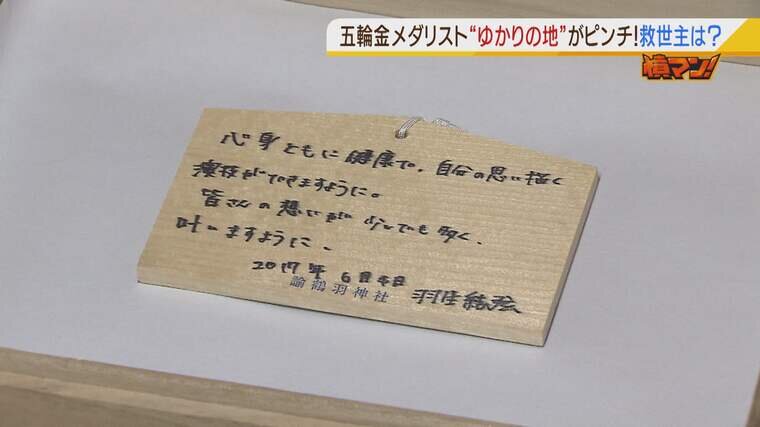 五輪金メダリスト“ゆかりの地”がピンチ!救世主は?
横マン!
心身ともに健康で、自分の思い描く
演技ができますように。
皆さんの想いが少しでも多く、
叶いますように。
2017年6月4日 羽生結弦
諭鶴羽神社